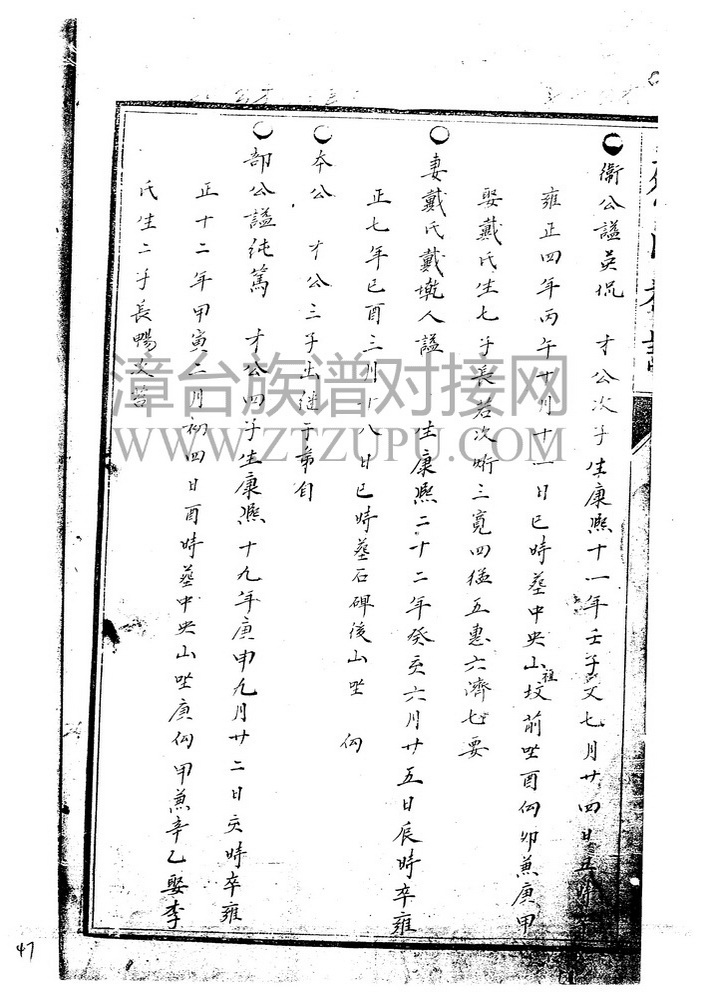 衞公諡英侃 才公次子生康熙十一年壬子又七月廿四日丑時
雍正四年丙午十月十一日巳時墓中央山祖坟前坐酉向卯兼庚甲
娶戴氏生七子長若次衎三寬四猛五惠六濟七要
妻戴氏戴墘人諡 生康熙二十二年癸亥六月廿五日辰時卒雍
正七年己酉三月十八日巳時墓石碑後山坐 向
本公 才公三子出继于弟自
部公諡纯篤 才公四子生康熙十九年庚申九月廿二日亥時卒雍
正十二年甲寅二月初四日酉時墓中央山坐庚向甲兼辛乙娶李
氏生二子長暢次營
漳台族谱对接网
WWW.ZTZUPU.COM
47